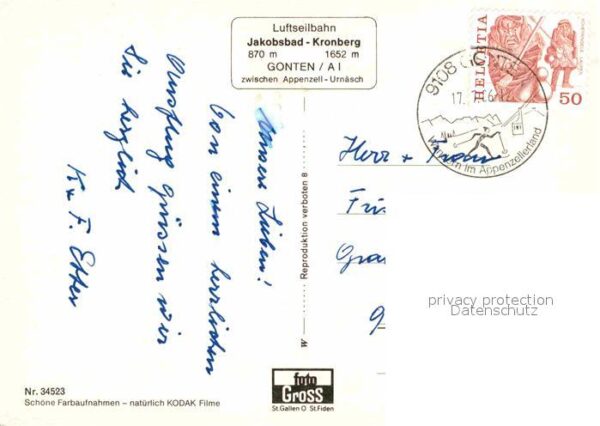 Luftseilbahn
Jakobsbad - Kronberg
870 m 1652 m
GONTEN / A I
zwischen Appenzell - Urnäsch
HELVETIA
50
9108 GONTEN
17.
Wandern im Appenzellerland
Unsere Lieben!
Von einem herrlichen
Ausflug grüssen wir
Sie herzlich
K + F. Etter
Herr + Frau
Fri
Gra
9
W — Reproduktion verboten 8
privacy protection
Datenschutz
Nr. 34523
Schöne Farbaufnahmen – natürlich KODAK Filme
foto
GROSS
St.Gallen O St.Fiden